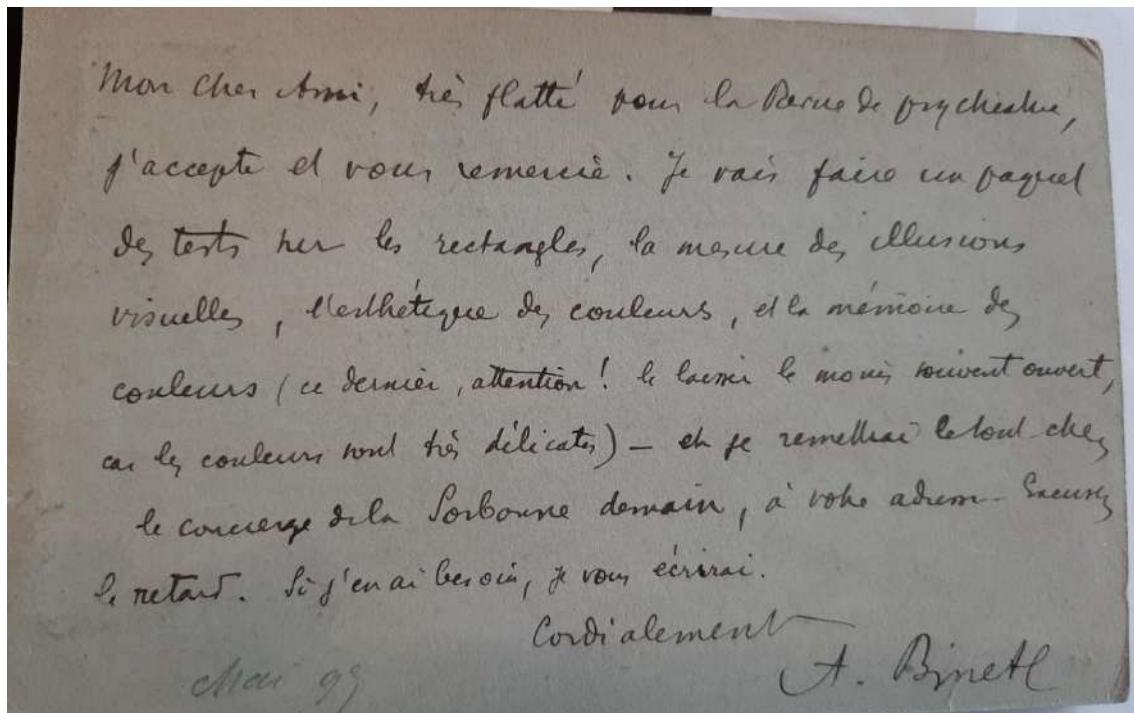 Mon cher Ami, très flatté pour la Revue de psychiatrie,
j'accepte et vous remercie. Je vais faire un paquet
des tests sur les rectangles, la mesure des illusions
visuelles, l'esthétique des couleurs, et la mémoire des
couleurs (ce dernier, attention ! le laisser le moins souvent ouvert,
car les couleurs sont très délicates) – et je remettrai le tout chez
le concierge de la Sorbonne demain, à votre adresse – Excusez
le retard. Si j'en ai besoin, je vous écrirai.
Cordialement
A. Binet
Mai 99